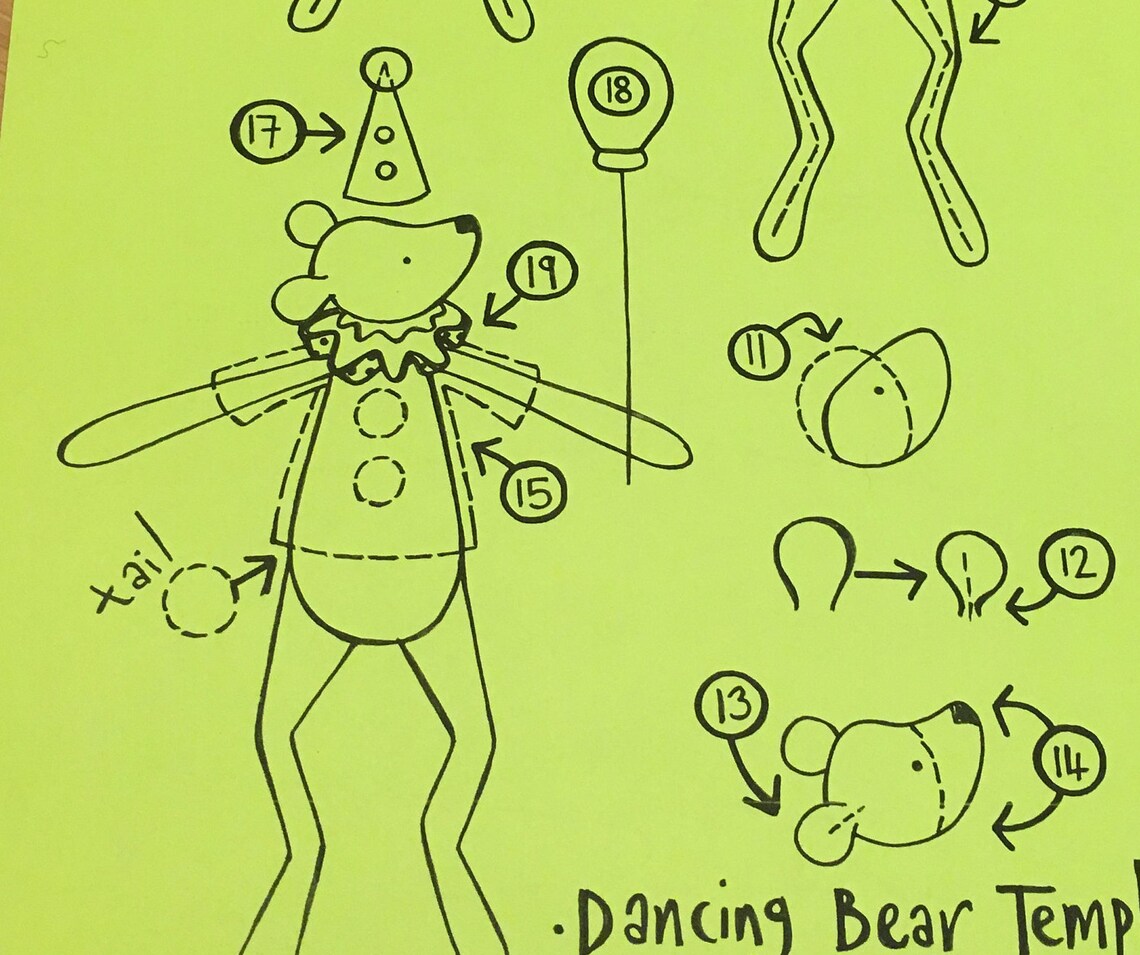 17
18
19
11
15
12
tail
13
14
.Dancing Bear Templ